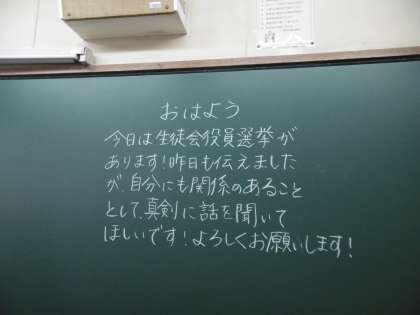 おはよう
今日は生徒会役員選挙が
あります!昨日も伝えました
が、自分にも関係のあること
として、真剣に話を聞いて
ほしいです!よろしくお願いします!